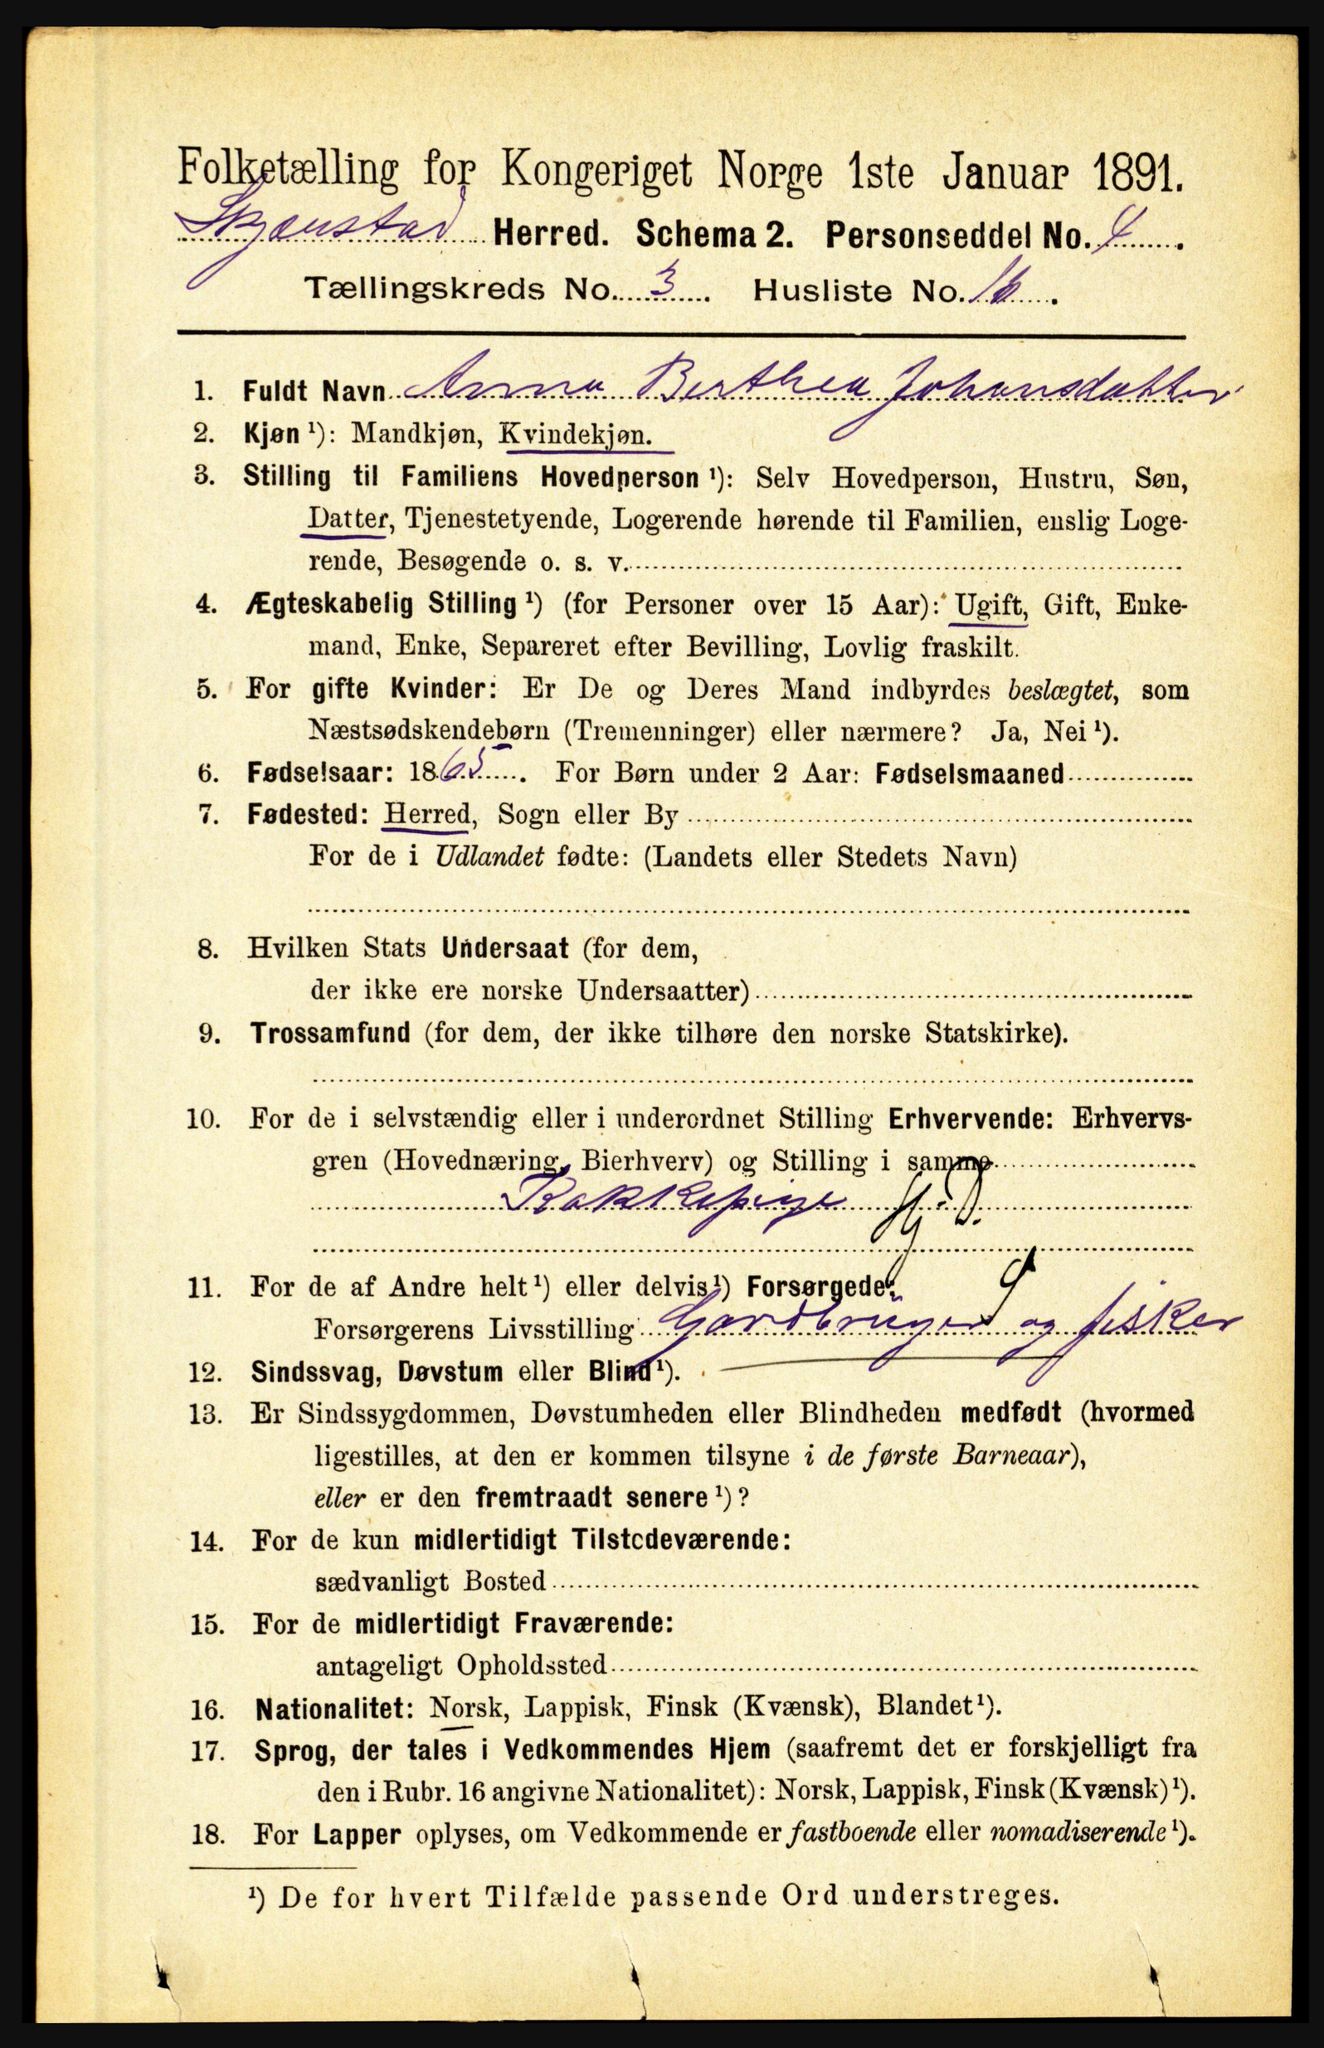 Folketælling for Kongeriget Norge 1ste Januar 1891.
Skjærstad Herred. Schema 2. Personseddel No. 4
Tællingskreds No. 3 Husliste No. 16
1. Fuldt Navn Anna Berthea Johansdatter
2. Kjøn ¹): Mandkjøn, Kvindekjøn.
3. Stilling til Familiens Hovedperson ¹): Selv Hovedperson, Hustru, Søn,
Datter, Tjenestetyende, Logerende hørende til Familien, enslig Loge-
rende, Besøgende o. s. v.
4. Ægteskabelig Stilling ¹) (for Personer over 15 Aar): Ugift, Gift, Enke-
mand, Enke, Separeret efter Bevilling, Lovlig fraskilt.
5. For gifte Kvinder: Er De og Deres Mand indbyrdes beslægtet, som
Næstsødskendebørn (Tremenninger) eller nærmere? Ja, Nei ¹).
6. Fødselsaar: 1865. For Børn under 2 Aar: Fødselsmaaned
7. Fødested: Herred, Sogn eller By
For de i Udlandet fødte: (Landets eller Stedets Navn)
8. Hvilken Stats Undersaat (for dem,
der ikke ere norske Undersaatter)
9. Trossamfund (for dem, der ikke tilhøre den norske Statskirke).
10. For de i selvstændig eller i underordnet Stilling Erhvervende: Erhvervs-
gren (Hovednæring, Bierhverv) og Stilling i samme
Kokkepige Hj. D.
11. For de af Andre helt ¹) eller delvis ¹) Forsørgede:
Forsørgerens Livsstilling Gardbruger og fisker
12. Sindssvag, Døvstum eller Blind ¹).
13. Er Sindssygdommen, Døvstumheden eller Blindheden medfødt (hvormed
ligestilles, at den er kommen tilsyne i de første Barneaar),
eller er den fremtraadt senere ¹)?
14. For de kun midlertidigt Tilstedeværende:
sædvanligt Bosted
15. For de midlertidigt Fraværende:
antageligt Opholdssted
16. Nationalitet: Norsk, Lappisk, Finsk (Kvænsk), Blandet ¹).
17. Sprog, der tales i Vedkommendes Hjem (saafremt det er forskjelligt fra
den i Rubr. 16 angivne Nationalitet): Norsk, Lappisk, Finsk (Kvænsk) ¹).
18. For Lapper oplyses, om Vedkommende er fastboende eller nomadiserende ¹).
¹) De for hvert Tilfælde passende Ord understreges.